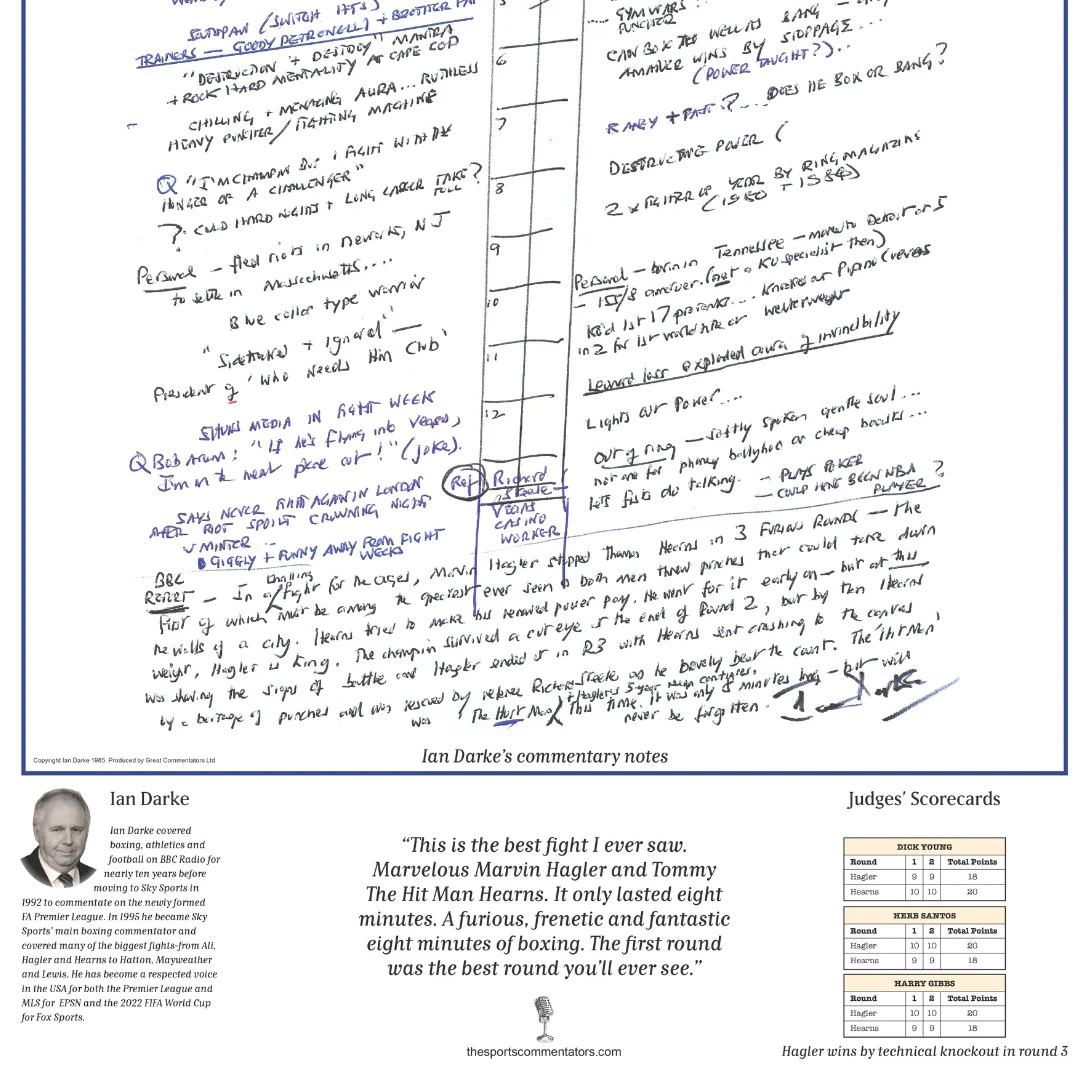 SOUTHPAW (SWITCH HITS)
TRAINERS — GOODY PETRONELLI + BROTHER PAT
"DESTRUCTION + DESTROY" MANTRA
+ ROCK HARD MENTALITY AT CAPE COD
CHILLING + MENACING AURA... RUTHLESS
HEAVY PUNCHER / FIGHTING MACHINE
Q "I'M CHAMPION BUT I FIGHT WITH THE
HUNGER OF A CHALLENGER"
? COLD HARD NIGHTS + LONG CAREER TAKE TOLL?
Personal — fled riots in Newark, NJ
to settle in Massachusetts....
Blue collar type warrior
"Sidetracked + Ignored" —
President of 'Who Needs Him Club'
SHUNS MEDIA IN FIGHT WEEK
Q Bob Arum: "If he's flying into Vegas,
I'm on the next plane out!" (joke).
SAYS NEVER FIGHT AGAIN IN LONDON
AFTER RIOT SPOILT CROWNING NIGHT
v MINTER...
GIGGLY + FUNNY AWAY FROM FIGHT
WEEKS
5
6
7
8
9
10
11
12
Ref Richard
Steele —
VEGAS
CASINO
WORKER
GYM WARS
PUNCHER
CAN BOX AS WELL AS BANG —
AMATEUR WINS BY STOPPAGE...
(POWER TAUGHT?)..
RANGY + FAST?.... DOES HE BOX OR BANG?
DESTRUCTIVE POWER (
2 x FIGHTER OF YEAR BY RING MAGAZINE
(1980 + 1984)
Personal — born in Tennessee — moved to Detroit at 5
— 155/8 amateur. (not a KO specialist then)
KO'd 1st 17 pro ranks.... Knocked out Pipino Cuevas
in 2 for 1st world title at welterweight
Leonard loss exploded aura of invincibility
Lights Out Power....
Out of ring — softly spoken gentle soul...
not one for phoney ballyhoo or cheap boasts...
Lets fists do talking.
— PLAYS POKER
— COULD HAVE BEEN NBA PLAYER?
BBC
REPORT — In a thrilling fight for the ages, Marvin Hagler stopped Thomas Hearns in 3 FURIOUS ROUNDS — the
first of which must be among the greatest ever seen as both men threw punches that could take down
the walls of a city. Hearns tried to make his renowned power pay. He went for it early on — but at this
weight, Hagler is King. The champion survived a cut eye at the end of Round 2, but by then Hearns
was showing the signs of battle and Hagler ended it in R3 with Hearns sent crashing to the canvas
by a barrage of punches and was rescued by referee Richard Steele as he barely beat the count. The 'Hit Man'
was 'The Hurt Man' This time. + Hagler's 5-year reign continues. It was only 8 minutes long — but will
never be forgotten.
Ian Darke
Copyright Ian Darke 1985. Produced by Great Commentators Ltd
Ian Darke's commentary notes
Ian Darke
Ian Darke covered
boxing, athletics and
football on BBC Radio for
nearly ten years before
moving to Sky Sports in
1992 to commentate on the newly formed
FA Premier League. In 1995 he became Sky
Sports' main boxing commentator and
covered many of the biggest fights-from Ali,
Hagler and Hearns to Hatton, Mayweather
and Lewis. He has become a respected voice
in the USA for both the Premier League and
MLS for EPSN and the 2022 FIFA World Cup
for Fox Sports.
"This is the best fight I ever saw.
Marvelous Marvin Hagler and Tommy
The Hit Man Hearns. It only lasted eight
minutes. A furious, frenetic and fantastic
eight minutes of boxing. The first round
was the best round you'll ever see."
thesportscommentators.com
Judges' Scorecards
DICK YOUNG
Round 1 2 Total Points
Hagler 9 9 18
Hearns 10 10 20
HERB SANTOS
Round 1 2 Total Points
Hagler 10 10 20
Hearns 9 9 18
HARRY GIBBS
Round 1 2 Total Points
Hagler 10 10 20
Hearns 9 9 18
Hagler wins by technical knockout in round 3